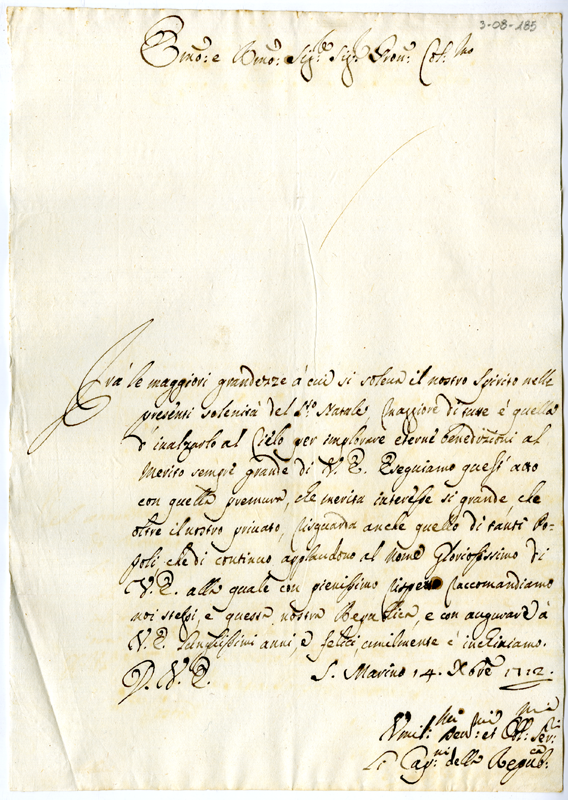 3-08-185
Emo: e Rmo: Sigr: Sigr: Pron: Col:mo
Frà le maggiori grandezze à cui si soleua il nostro Spirito nelle
presenti solenità del S:to Natale, maggiore di tutte è quella
d'inalzarlo al Cielo per implorare eterne benedizioni al
Merito sempre grande di V. E. Eseguiamo quest'atto
con quella premura, che merita interesse si grande, che
oltre il nostro priuato, risguarda anche quello di tanti Po-
poli che di continuo applaudono al nome Gloriosissimo di
V. E. alla quale con pienissimo rispetto raccomandiamo
noi stessi, e questa nostra Republica, e con augurare à
V. E. lunghissimi anni, e felici, umilmente c'inchiniamo.
D. V. E. S. Marino 14. Xbre 1712.
Vmil:mi Deu:mi et Obl: Ser:ri
Li Cap:ni della Repub:ca